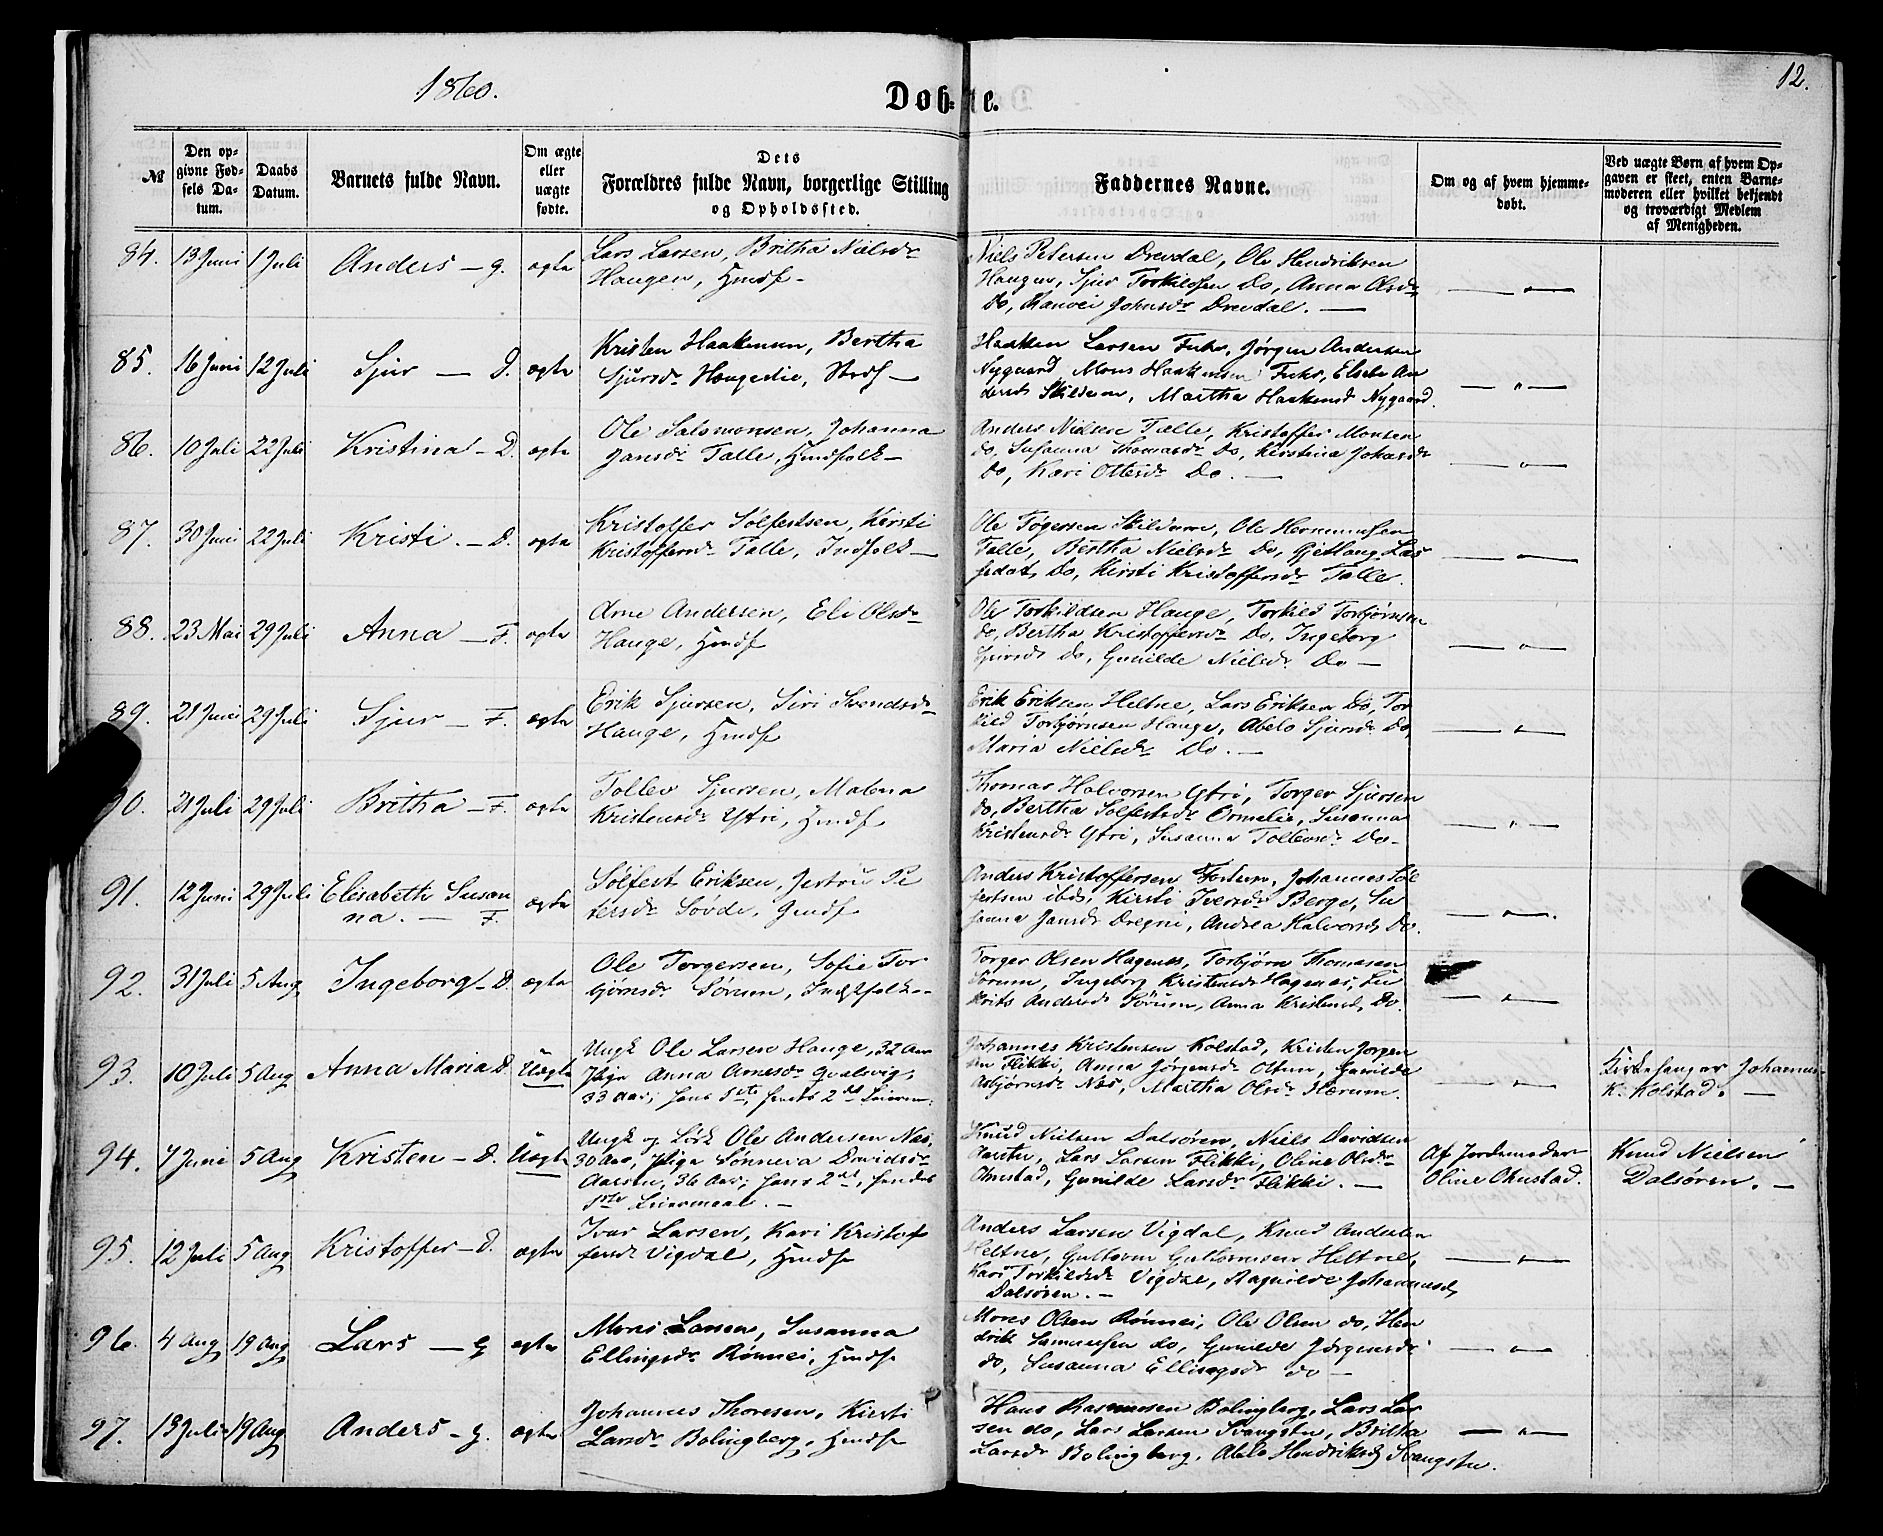 1860.
Døbte.
12.
№
Den opgivne Fødsels Datum.
Daabs Datum.
Barnets fulde Navn.
Om ægte eller uægte fødte.
Dets Forældres fulde Navn, borgerlige Stilling og Opholdssted.
Faddernes Navne.
Om og af hvem hjemmedøbt.
Ved uægte Børn af hvem Opgaven er skeet, enten Barnemoderen eller hvilket bekjendt og troværdigt Medlem af Menigheden.
84. 13 Juni 1 Juli Anders – g. ægte
Lars Larsen, Britha Nielsdr
Haugen, Hmdf –
Niels Petersen Drevdal, Ole Hendriksen
Haugen, Sjur Torkildsen Do, Anna Olsdr
Do, Ranvei Johnsdr Drevdal. —
— „ —
85. 16 Juni 12 Juli Sjur — D. ægte
Kristen Haakensen, Bertha
Sjursdr
Haaken Larsen Fuhr, Jørgen Andersen
Nygaard, Mons Haakensen Fuhr, Elsebe An
dersd Skildum, Martha Haakensd Nygaard.
— „ —
86. 10 Juli 22 Juli Kristina – D. ægte
Ole Salomonsen, Johanna
Jansdr Talle, Hmdfolk –
Anders Nielsen Talle, Kristoffer Monsen
do, Susanna Thomasdr Do, Kirstina Johansdr
Do, Kari Ottesdr Do. —
— „ —
87. 30 Juni 22 Juli Kristi. – D. ægte
Kristoffer Sølfestsen, Kirsti
Kristoffersdr Talle, Indfolk –
Ole Tøgersen Skildum, Ole Hermundsen
Talle, Bertha Nielsdr Do, Gjetlaug Las
sedat, Do, Kirsti Kristoffersdr Talle.
— „ —
88. 23 Mai 29 Juli Anna – F. ægte
Arne Andersen, Eli Olsdr
Hauge, Hmdf
Ole Torkildsen Hauge, Torkild Torbjørnsen
do, Bertha Kristoffersdr Do, Ingeborg
Sjursdr do, Gunilde Nielsdr Do –
— „ —
89. 21 Juni 29 Juli Sjur – F. ægte
Erik Sjursen, Siri Svendsdr
Hauge, Hmdf
Erik Eriksen Heltne, Lars Eriksen Do, Tor
kild Torbjørnsen Hauge, Abelo Sjursdr Do,
Maria Nielsdr Do. –
— „ —
90. 21 Juli 29 Juli Britha – F. ægte
Tollev Sjursen, Malena
Kristensdr Ytri, Hmdf
Thomas Halvorsen Ytri, Torger Sjursen
do, Bertha Sølfestsdr Ormelie, Susanna
Kristensdr Ytri, Susanna Tollevsdr Do –
— „ —
91. 12 Juni 29 Juli Elisabeth Susan
na. – F. ægte
Sølfest Eriksen, Jertrui Pe
tersdr Søvde, Hmdf
Anders Kristoffersen Fortun, Johannes Søl
festsen ibid, Kirsti Iversdr Berge, Su
sanna Jansdr Dregni, Andrea Halvorsd, Do.
— „ —
92. 31 Juli 5 Aug Ingeborg – D. ægte
Ole Torgersen, Sofie Tor
bjørnsdr Sørum, Indstfolk –
Torger Olsen Hagenes, Torbjørn Thomasen
Sørum, Ingeborg Kristensdr Hagenes, Lu
krits Andersd Sørum, Anna Kristensd, Do.
— „ —
93. 10 Juli 5 Aug Anna Maria D. Uægte
Ungk Ole Larsen Hauge, 32 Aar
Piga Anna Arnesdr Qvalsvig,
33 Aar; hans 1ste, hendes 2det Leierm.
Johannes Kristensen Kolstad, Kristen Jørgen
sen Flikki, Anna Jørgensdr Ottum, Gunilde
Asbjørnsdr Næs, Martha Olsdr Hærum.
— „ —
Kirkesanger Johannes
K. Kolstad. —
94. 7 Juni 5 Aug Kristen – D. Uægte
Ungk og Løsk Ole Andersen Næs,
30 Aar, Piga Sønneva Davidsdr
Aasen, 36 Aar; hans 2det, hendes
1ste Leiermaal. –
Knud Nielsen Dalsøren, Niels Davidsen
Lars Larsen Flikki, Oline Olsdr
Ohnstad, Gunilde Larsdr Flikki. —
Af Jordemoder
Oline Ohnstad.
Knud Nielsen
Dalsøren. –
95. 12 Juli 5 Aug Kristoffer – D. ægte
Ivar Larsen, Kari Kristof
fersdr Vigdal, Hmdf
Anders Larsen Vigdal, Knud Andersen
Heltne, Guttorm Guttormsen Heltne,
Kari Torkildsdr Vigdal, Ragnilde Johannesd,
Dalsøren. –
— „ —
96. 4 Aug 19 Aug Lars — g ægte
Mons Larsen, Susanna
Ellingsdr Rønnei, Hmdf
Mons Olsen Rønnei, Ole Olsen do, Hen
drik Samuelsen do, Gunilde Jørgensdr
do, Susanna Ellingsdr do –
— „ —
97. 13 Juli 19 Aug Anders – g. ægte
Johannes Thoresen, Kirsti
Larsdr Bolingberg, Hmdf
Hans Rasmussen Bolingberg, Lars Lar
sen do, Lars Larsen Svangstu, Britha
Larsdr Bolingberg, Abelo Hendriksd, Svangstu.
— „ —